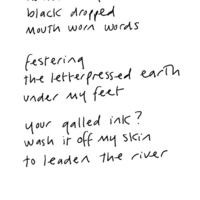 black dropped
mouth worn words
festering
the letterpressed earth
under my feet
your galled ink?
wash it off my skin
to leaden the river